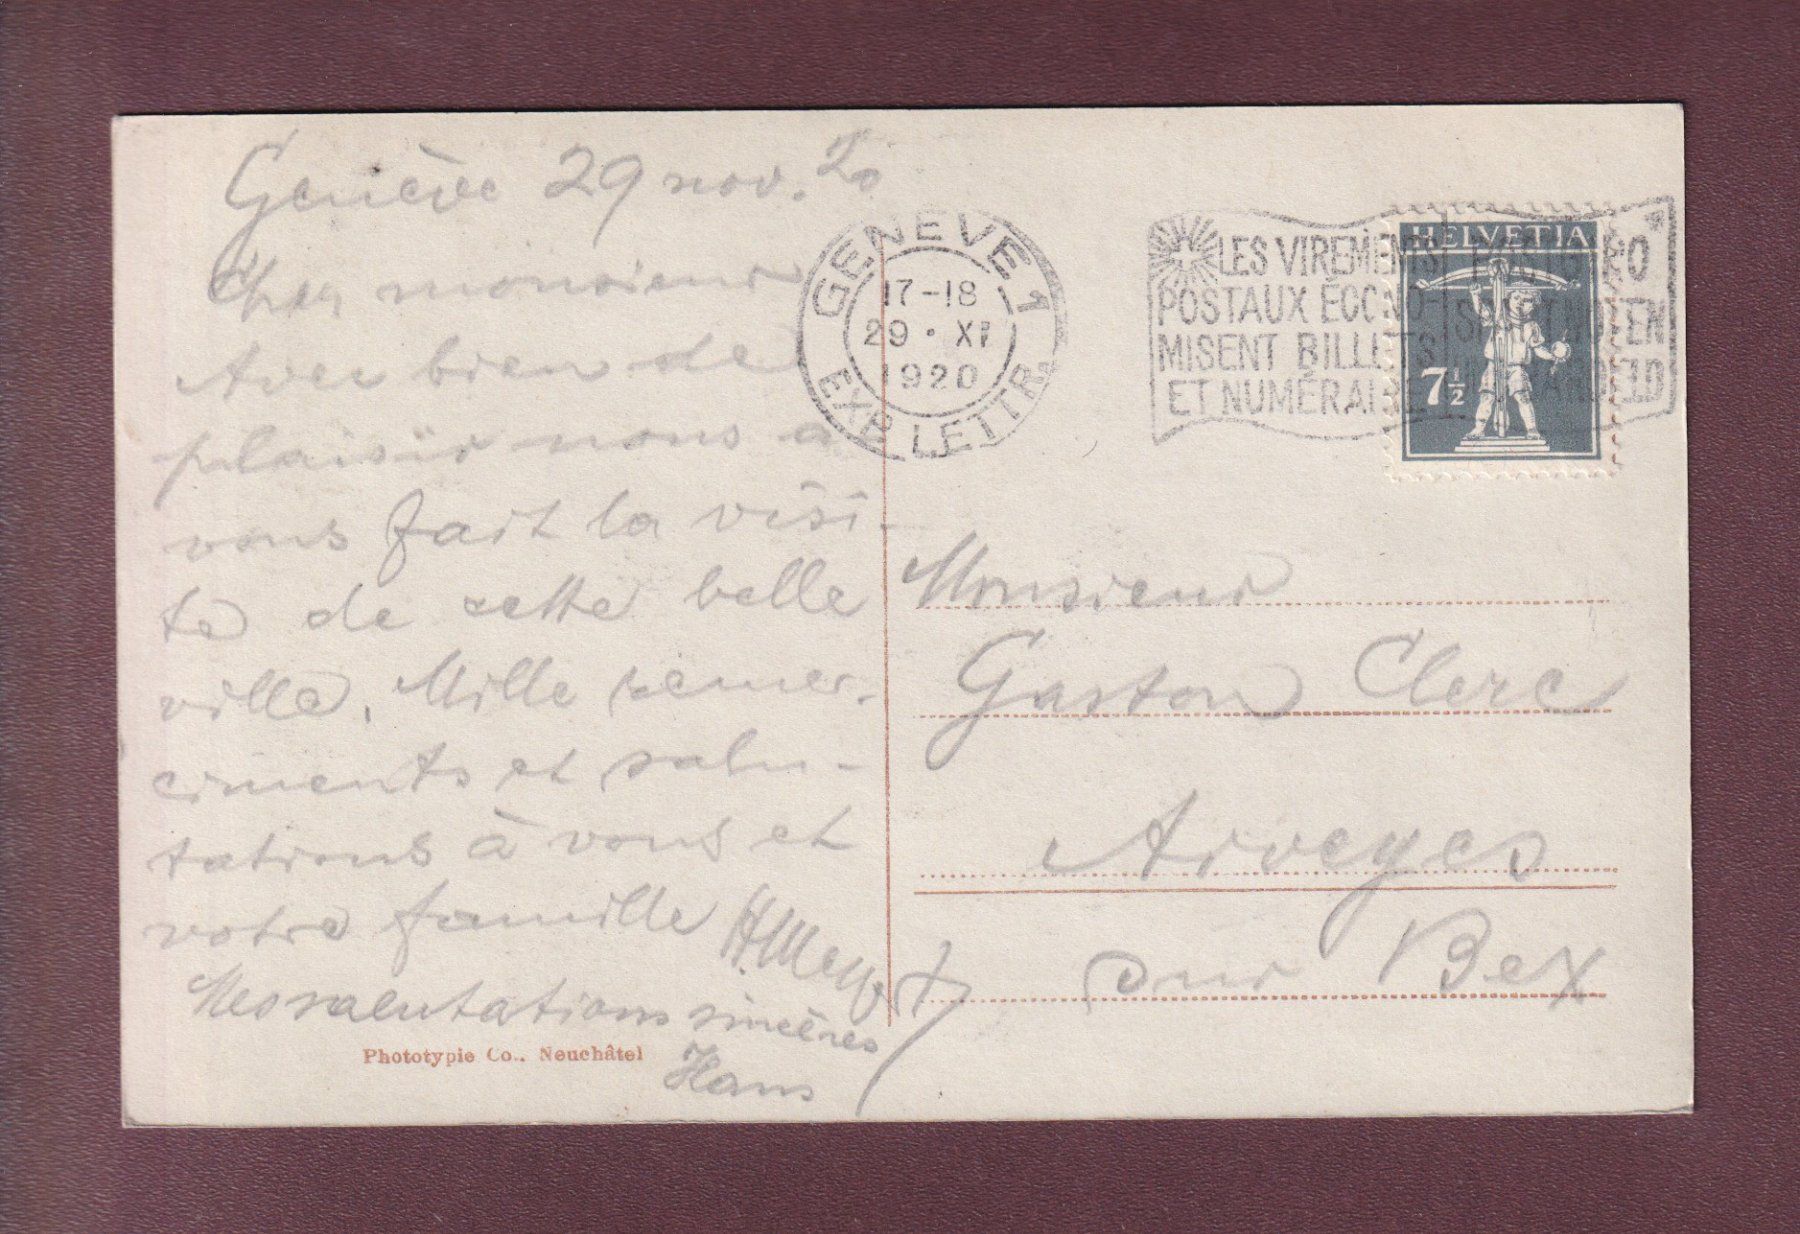 Genève 29 nov. 20
Cher monsieur
Avec bien de
plaisir nous a
vons fait la visi-
te de cette belle
ville. Mille remer-
ciments et salu-
tations à vous et
votre famille H. Meyer
Mes salutations sincères
Hans
Phototypie Co., Neuchâtel
GENÈVE 1
17-18
29 · XI
1920
EXP. LETTR.
LES VIREMENTS
POSTAUX ÉCONO-
MISENT BILLETS
ET NUMÉRAIRE
HELVETIA
7½
Monsieur
Gaston Clerc
Arveyes
sur Bex